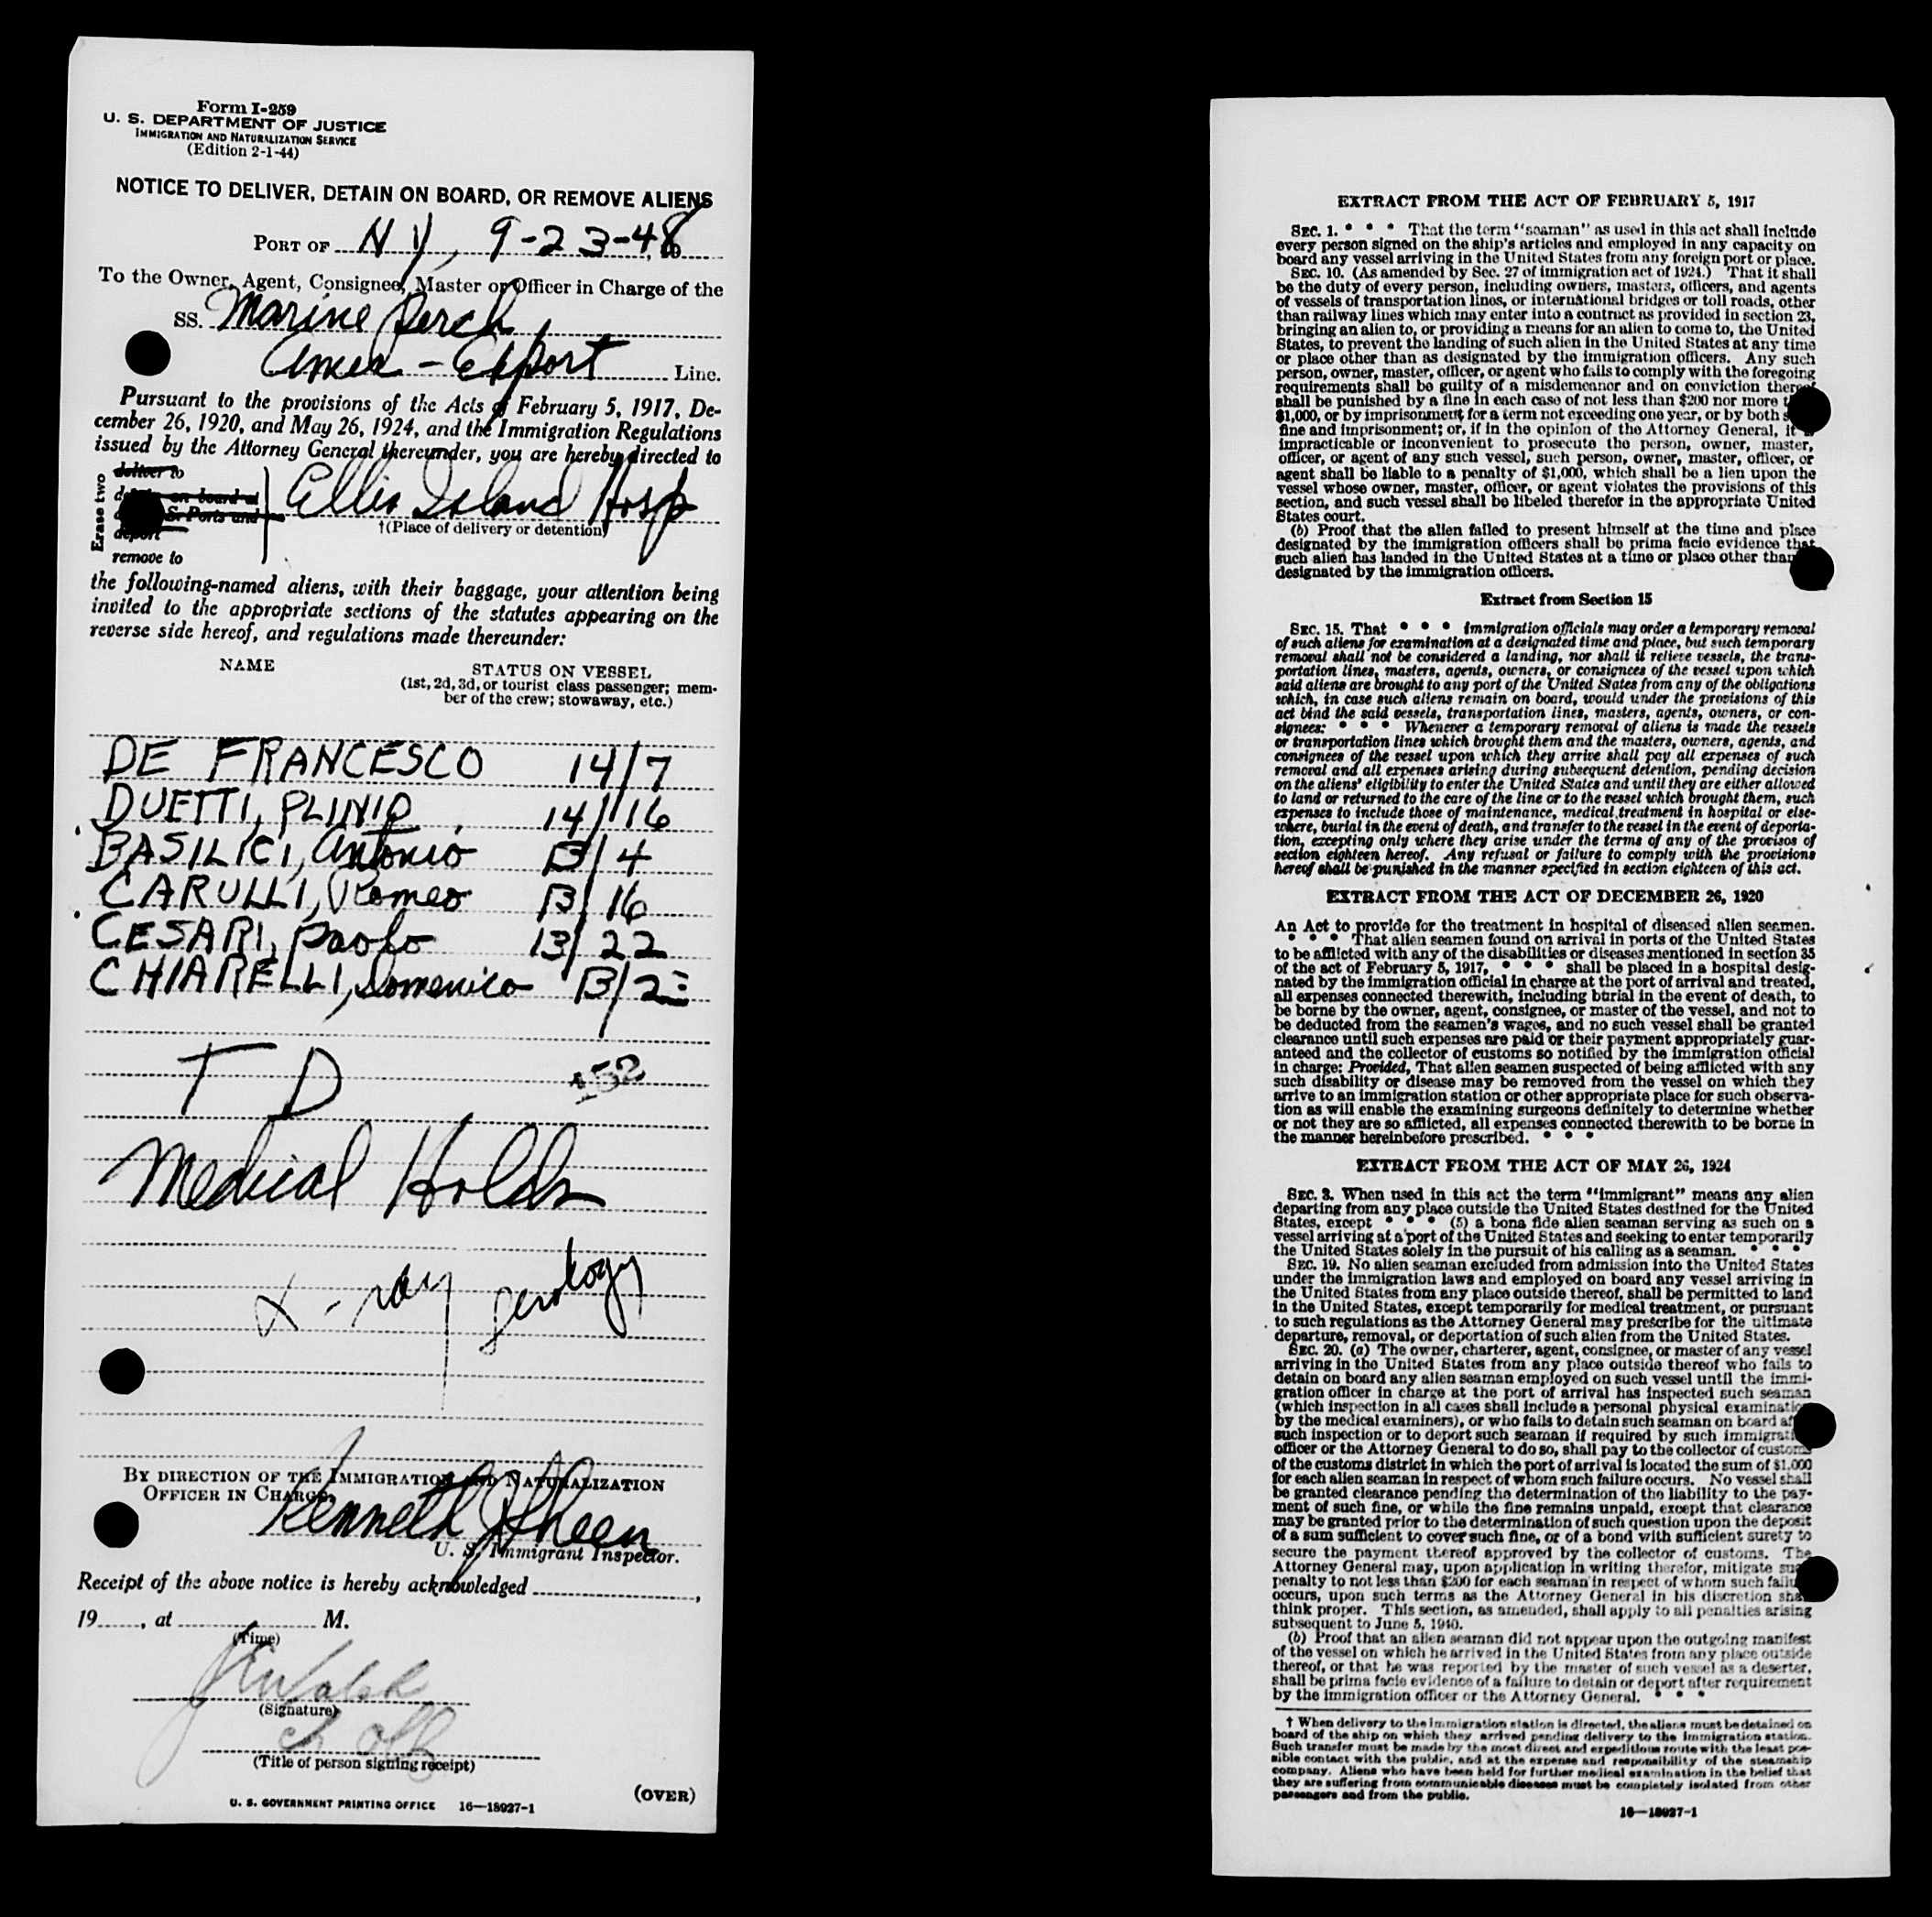 Form I-259
U. S. DEPARTMENT OF JUSTICE
IMMIGRATION AND NATURALIZATION SERVICE
(Edition 2-1-44)
NOTICE TO DELIVER, DETAIN ON BOARD, OR REMOVE ALIENS
PORT OF N Y, 9-23-48
To the Owner, Agent, Consignee, Master or Officer in Charge of the
SS. Marine Perch
Amer-Export Line.
Pursuant to the provisions of the Acts of February 5, 1917, De-
cember 26, 1920, and May 26, 1924, and the Immigration Regulations
issued by the Attorney General thereunder, you are hereby directed to
Erase two
deliver to
on board at
S. Ports and
deport
remove to
Ellis Island Hosp
†(Place of delivery or detention)
the following-named aliens, with their baggage, your attention being
invited to the appropriate sections of the statutes appearing on the
reverse side hereof, and regulations made thereunder:
NAME STATUS ON VESSEL
(1st, 2d, 3d, or tourist class passenger; mem-
ber of the crew; stowaway, etc.)
DE FRANCESCO 14/7
DUETTI, PLINIO 14/16
BASILICI, Antonio 13/4
CARULLI, Romeo 13/16
CESARI, Paolo 13/22
CHIARELLI, Domenico 13/2
T D
Medical Holds
X-ray serology
BY DIRECTION OF THE IMMIGRATION AND NATURALIZATION
OFFICER IN CHARGE.
Kenneth J Sheen
U. S. Immigrant Inspector.
Receipt of the above notice is hereby acknowledged ,
19 , at M.
(Time)
(Signature)
(Title of person signing receipt)
(OVER)
U. S. GOVERNMENT PRINTING OFFICE 16—18927-1
EXTRACT FROM THE ACT OF FEBRUARY 5, 1917
SEC. 1. * * * That the term "seaman" as used in this act shall include
every person signed on the ship's articles and employed in any capacity on
board any vessel arriving in the United States from any foreign port or place.
SEC. 10. (As amended by Sec. 27 of immigration act of 1924.) That it shall
be the duty of every person, including owners, masters, officers, and agents
of vessels of transportation lines, or international bridges or toll roads, other
than railway lines which may enter into a contract as provided in section 23,
bringing an alien to, or providing a means for an alien to come to, the United
States, to prevent the landing of such alien in the United States at any time
or place other than as designated by the immigration officers. Any such
person, owner, master, officer, or agent who fails to comply with the foregoing
requirements shall be guilty of a misdemeanor and on conviction thereof
shall be punished by a fine in each case of not less than $200 nor more
$1,000, or by imprisonment for a term not exceeding one year, or by both
fine and imprisonment; or, if in the opinion of the Attorney General, it
impracticable or inconvenient to prosecute the person, owner, master,
officer, or agent of any such vessel, such person, owner, master, officer, or
agent shall be liable to a penalty of $1,000, which shall be a lien upon the
vessel whose owner, master, officer, or agent violates the provisions of this
section, and such vessel shall be libeled therefor in the appropriate United
States court.
(b) Proof that the alien failed to present himself at the time and place
designated by the immigration officers shall be prima facie evidence that
such alien has landed in the United States at a time or place other than
designated by the immigration officers.
Extract from Section 15
SEC. 15. That * * * immigration officials may order a temporary removal
of such aliens for examination at a designated time and place, but such temporary
removal shall not be considered a landing, nor shall it relieve vessels, the trans-
portation lines, masters, agents, owners, or consignees of the vessel upon which
said aliens are brought to any port of the United States from any of the obligations
which, in case such aliens remain on board, would under the provisions of this
act bind the said vessels, transportation lines, masters, agents, owners, or con-
signees: * * * Whenever a temporary removal of aliens is made the vessels
or transportation lines which brought them and the masters, owners, agents, and
consignees of the vessel upon which they arrive shall pay all expenses of such
removal and all expenses arising during subsequent detention, pending decision
on the aliens' eligibility to enter the United States and until they are either allowed
to land or returned to the care of the line or to the vessel which brought them, such
expenses to include those of maintenance, medical treatment in hospital or else-
where, burial in the event of death, and transfer to the vessel in the event of deporta-
tion, excepting only where they arise under the terms of any of the provisos of
section eighteen hereof. Any refusal or failure to comply with the provisions
hereof shall be punished in the manner specified in section eighteen of this act.
EXTRACT FROM THE ACT OF DECEMBER 26, 1920
An Act to provide for the treatment in hospital of diseased alien seamen.
* * * That alien seamen found on arrival in ports of the United States
to be afflicted with any of the disabilities or diseases mentioned in section 35
of the act of February 5, 1917, * * * shall be placed in a hospital desig-
nated by the immigration official in charge at the port of arrival and treated,
all expenses connected therewith, including burial in the event of death, to
be borne by the owner, agent, consignee, or master of the vessel, and not to
be deducted from the seamen's wages, and no such vessel shall be granted
clearance until such expenses are paid or their payment appropriately guar-
anteed and the collector of customs so notified by the immigration official
in charge: Provided, That alien seamen suspected of being afflicted with any
such disability or disease may be removed from the vessel on which they
arrive to an immigration station or other appropriate place for such observa-
tion as will enable the examining surgeons definitely to determine whether
or not they are so afflicted, all expenses connected therewith to be borne in
the manner hereinbefore prescribed. * * *
EXTRACT FROM THE ACT OF MAY 26, 1924
SEC. 3. When used in this act the term "immigrant" means any alien
departing from any place outside the United States destined for the United
States, except * * * (5) a bona fide alien seaman serving as such on a
vessel arriving at a port of the United States and seeking to enter temporarily
the United States solely in the pursuit of his calling as a seaman. * * *
SEC. 19. No alien seaman excluded from admission into the United States
under the immigration laws and employed on board any vessel arriving in
the United States from any place outside thereof, shall be permitted to land
in the United States, except temporarily for medical treatment, or pursuant
to such regulations as the Attorney General may prescribe for the ultimate
departure, removal, or deportation of such alien from the United States.
SEC. 20. (a) The owner, charterer, agent, consignee, or master of any vessel
arriving in the United States from any place outside thereof who fails to
detain on board any alien seaman employed on such vessel until the immi-
gration officer in charge at the port of arrival has inspected such seaman
(which inspection in all cases shall include a personal physical examination
by the medical examiners), or who fails to detain such seaman on board
such inspection or to deport such seaman if required by such
officer or the Attorney General to do so, shall pay to the collector of customs
of the customs district in which the port of arrival is located the sum of $1,000
for each alien seaman in respect of whom such failure occurs. No vessel shall
be granted clearance pending the determination of the liability to the pay-
ment of such fine, or while the fine remains unpaid, except that clearance
may be granted prior to the determination of such question upon the deposit
of a sum sufficient to cover such fine, or of a bond with sufficient surety to
secure the payment thereof approved by the collector of customs. The
Attorney General may, upon application in writing therefor, mitigate such
penalty to not less than $200 for each seaman in respect of whom such failure
occurs, upon such terms as the Attorney General in his discretion shall
think proper. This section, as amended, shall apply to all penalties arising
subsequent to June 5, 1940.
(b) Proof that an alien seaman did not appear upon the outgoing manifest
of the vessel on which he arrived in the United States from any place outside
thereof, or that he was reported by the master of such vessel as a deserter,
shall be prima facie evidence of a failure to detain or deport after requirement
by the immigration officer or the Attorney General. * * *
† When delivery to the immigration station is directed, the aliens must be detained on
board of the ship on which they arrived pending delivery to the immigration station.
Such transfer must be made by the most direct and expeditious route with the least pos-
sible contact with the public, and at the expense and responsibility of the steamship
company. Aliens who have been held for further medical examination in the belief that
they are suffering from communicable diseases must be completely isolated from other
passengers and from the public.
16—18927-1